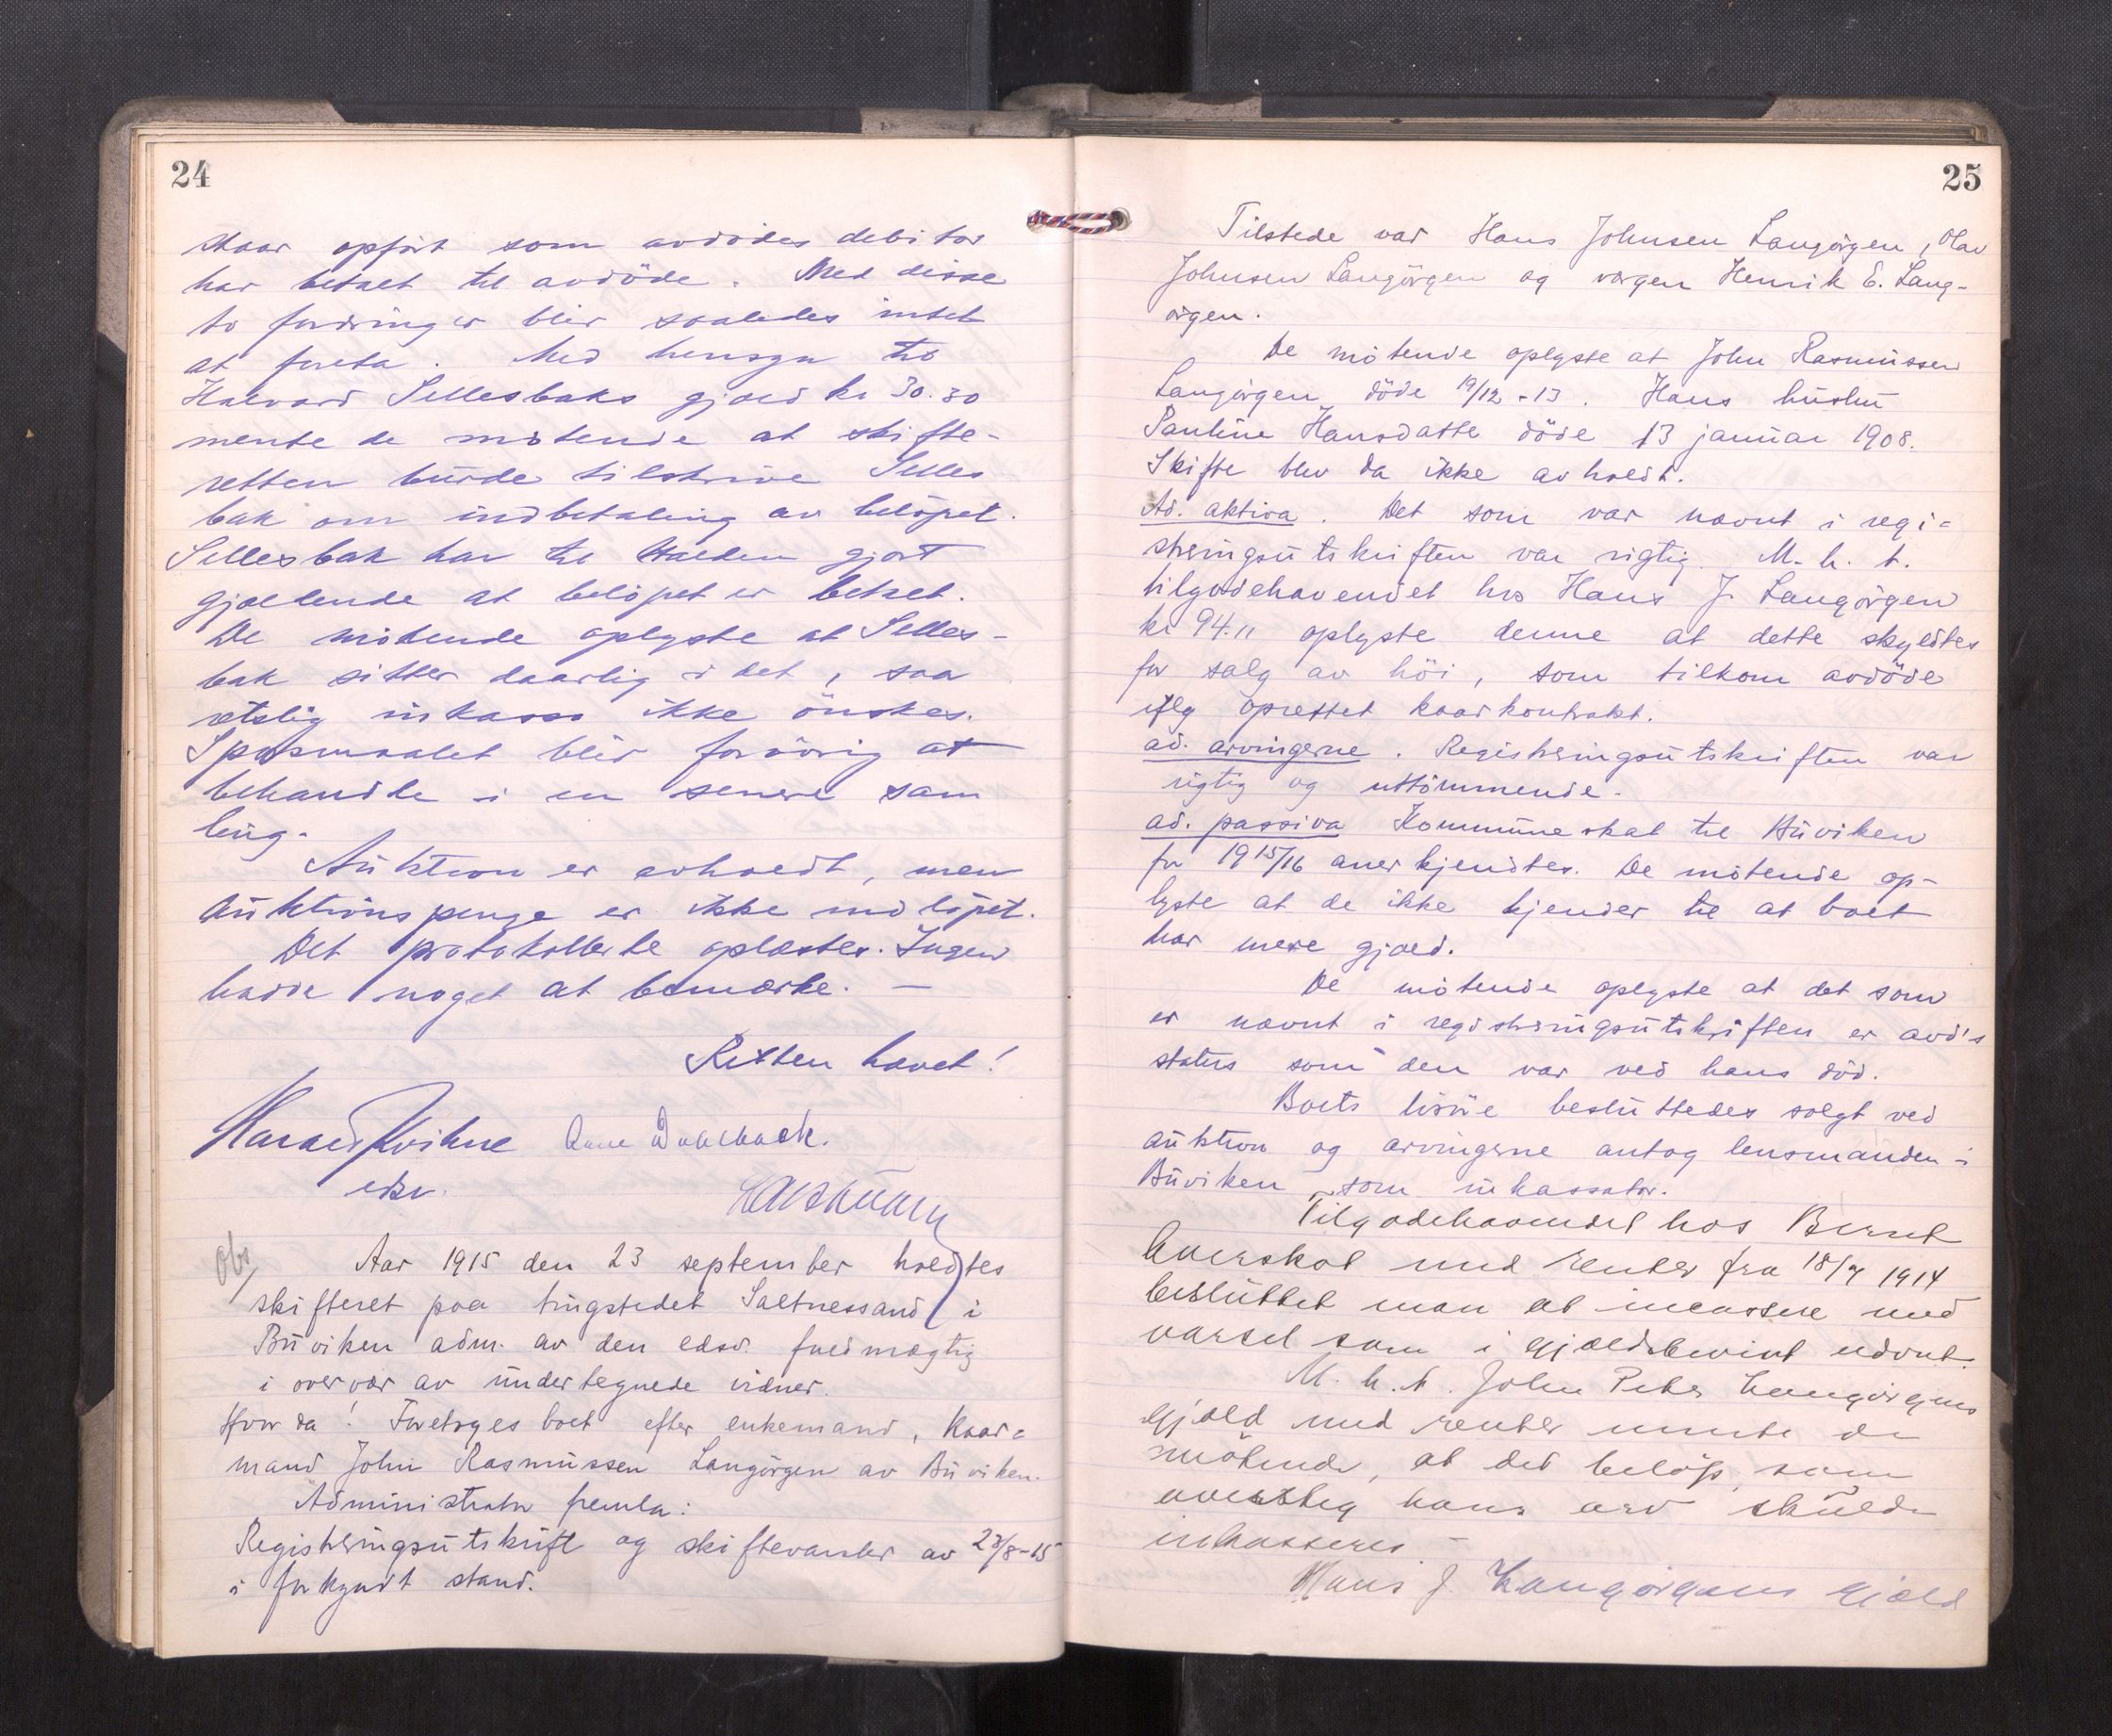 24
staar opført som avdødes debitor
har betalt til avdöde. Med disse
to fordringer blir saaledes intet
at foreta. Med hensyn til
Halvard Sellesbaks gjæld kr 30.30
mente de møtende at skifte-
retten burde tilskrive Selles
bak om indbetaling av beløpet.
Sellesbak har til gjort
gjældende at beløpet er betalt.
De møtende oplyste at Selles-
bak sitter daarlig i det, saa
retslig inkasso ikke önskes.
Spørsmaalet blir forøvrig at
behandle i en senere sam
ling.
Auktion er avholdt, men
auktionspenge er ikke indløpet.
Det protokollerte oplæstes. Ingen
hadde noget at bemærke. —
Retten hævet!
edsv.
Obs/
Aar 1915 den 23 september holdtes
skifteret paa tingstedet Saltnessand i
Buviken adm. av den edsv. fuldmægtig
i overvær av undertegnede vidner.
Hvor da! Foretoges boet efter enkemand, Kaar=
mand John Rasmussen Langörgen av Buviken.
Administrator fremla:
Registreringsutskrift og skiftevarsler av 23/8-15
i forkyndt stand.
25
Tilstede var Hans Johnsen Langörgen, Olav
Johnsen Langörgen og vergen Henrik E. Lang-
örgen.
De møtende oplyste at John Rasmussen
Langörgen döde 19/12-13. Hans hustru
Pauline Hansdatte döde 13 januar 1908.
Skifte blev da ikke avholdt.
Ad. aktiva. Det som var nævnt i regi=
streringsutskriften var rigtig. M. h. t.
tilgodehavendet hos Hans J. Langörgen
kr 94.11 oplyste denne at dette skyldtes
for salg av höi, som tilkom avdöde
iflg oprettet kaarkontrakt.
ad. arvingerne. Registreringsutskriften var
rigtig og uttömmende.
ad. passiva Kommuneskat til Buviken
for 1915/16 anerkjendtes. De møtende op-
lyste at de ikke kjender til at boet
har mere gjæld.
De møtende oplyste at det som
er nævnt i registreringsutskriften er avd's
status som den var ved hans död.
Boets lösöre besluttedes solgt ved
auktion og arvingerne antog lensmanden i
Buviken som inkassator.
Tilgodehavendet hos Bernt
Saverskot med renter fra 18/4 1914
besluttet man at incassere med
varsel som i gjældsbevist nævnt.
M. h. t. John Peter Langörgens
gjæld med renter mente de
møtende, at det beløp, som
oversteg hans arv skulde
inkasseres —
Hans J. Langörgens gjæld